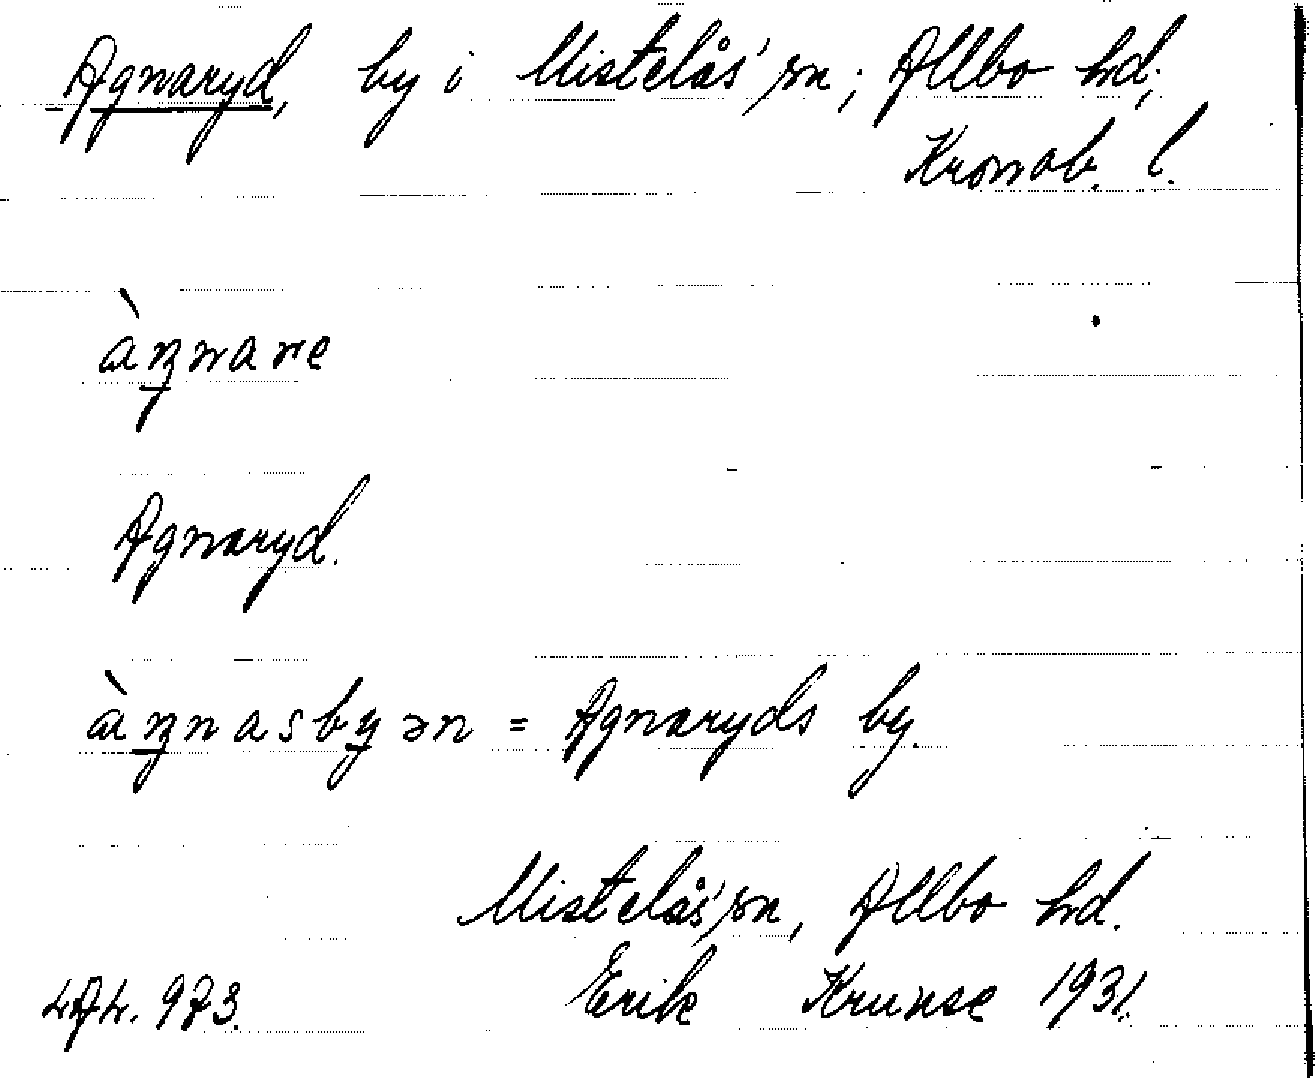 Agnaryd, by i Mistelås' sn; Allbo hd;
Kronob. l.
àŋnare
Agnaryd.
àŋnasbyən = Agnaryds by.
Mistelås' sn, Allbo hd.
474. 973. Erik Krunse 1931.